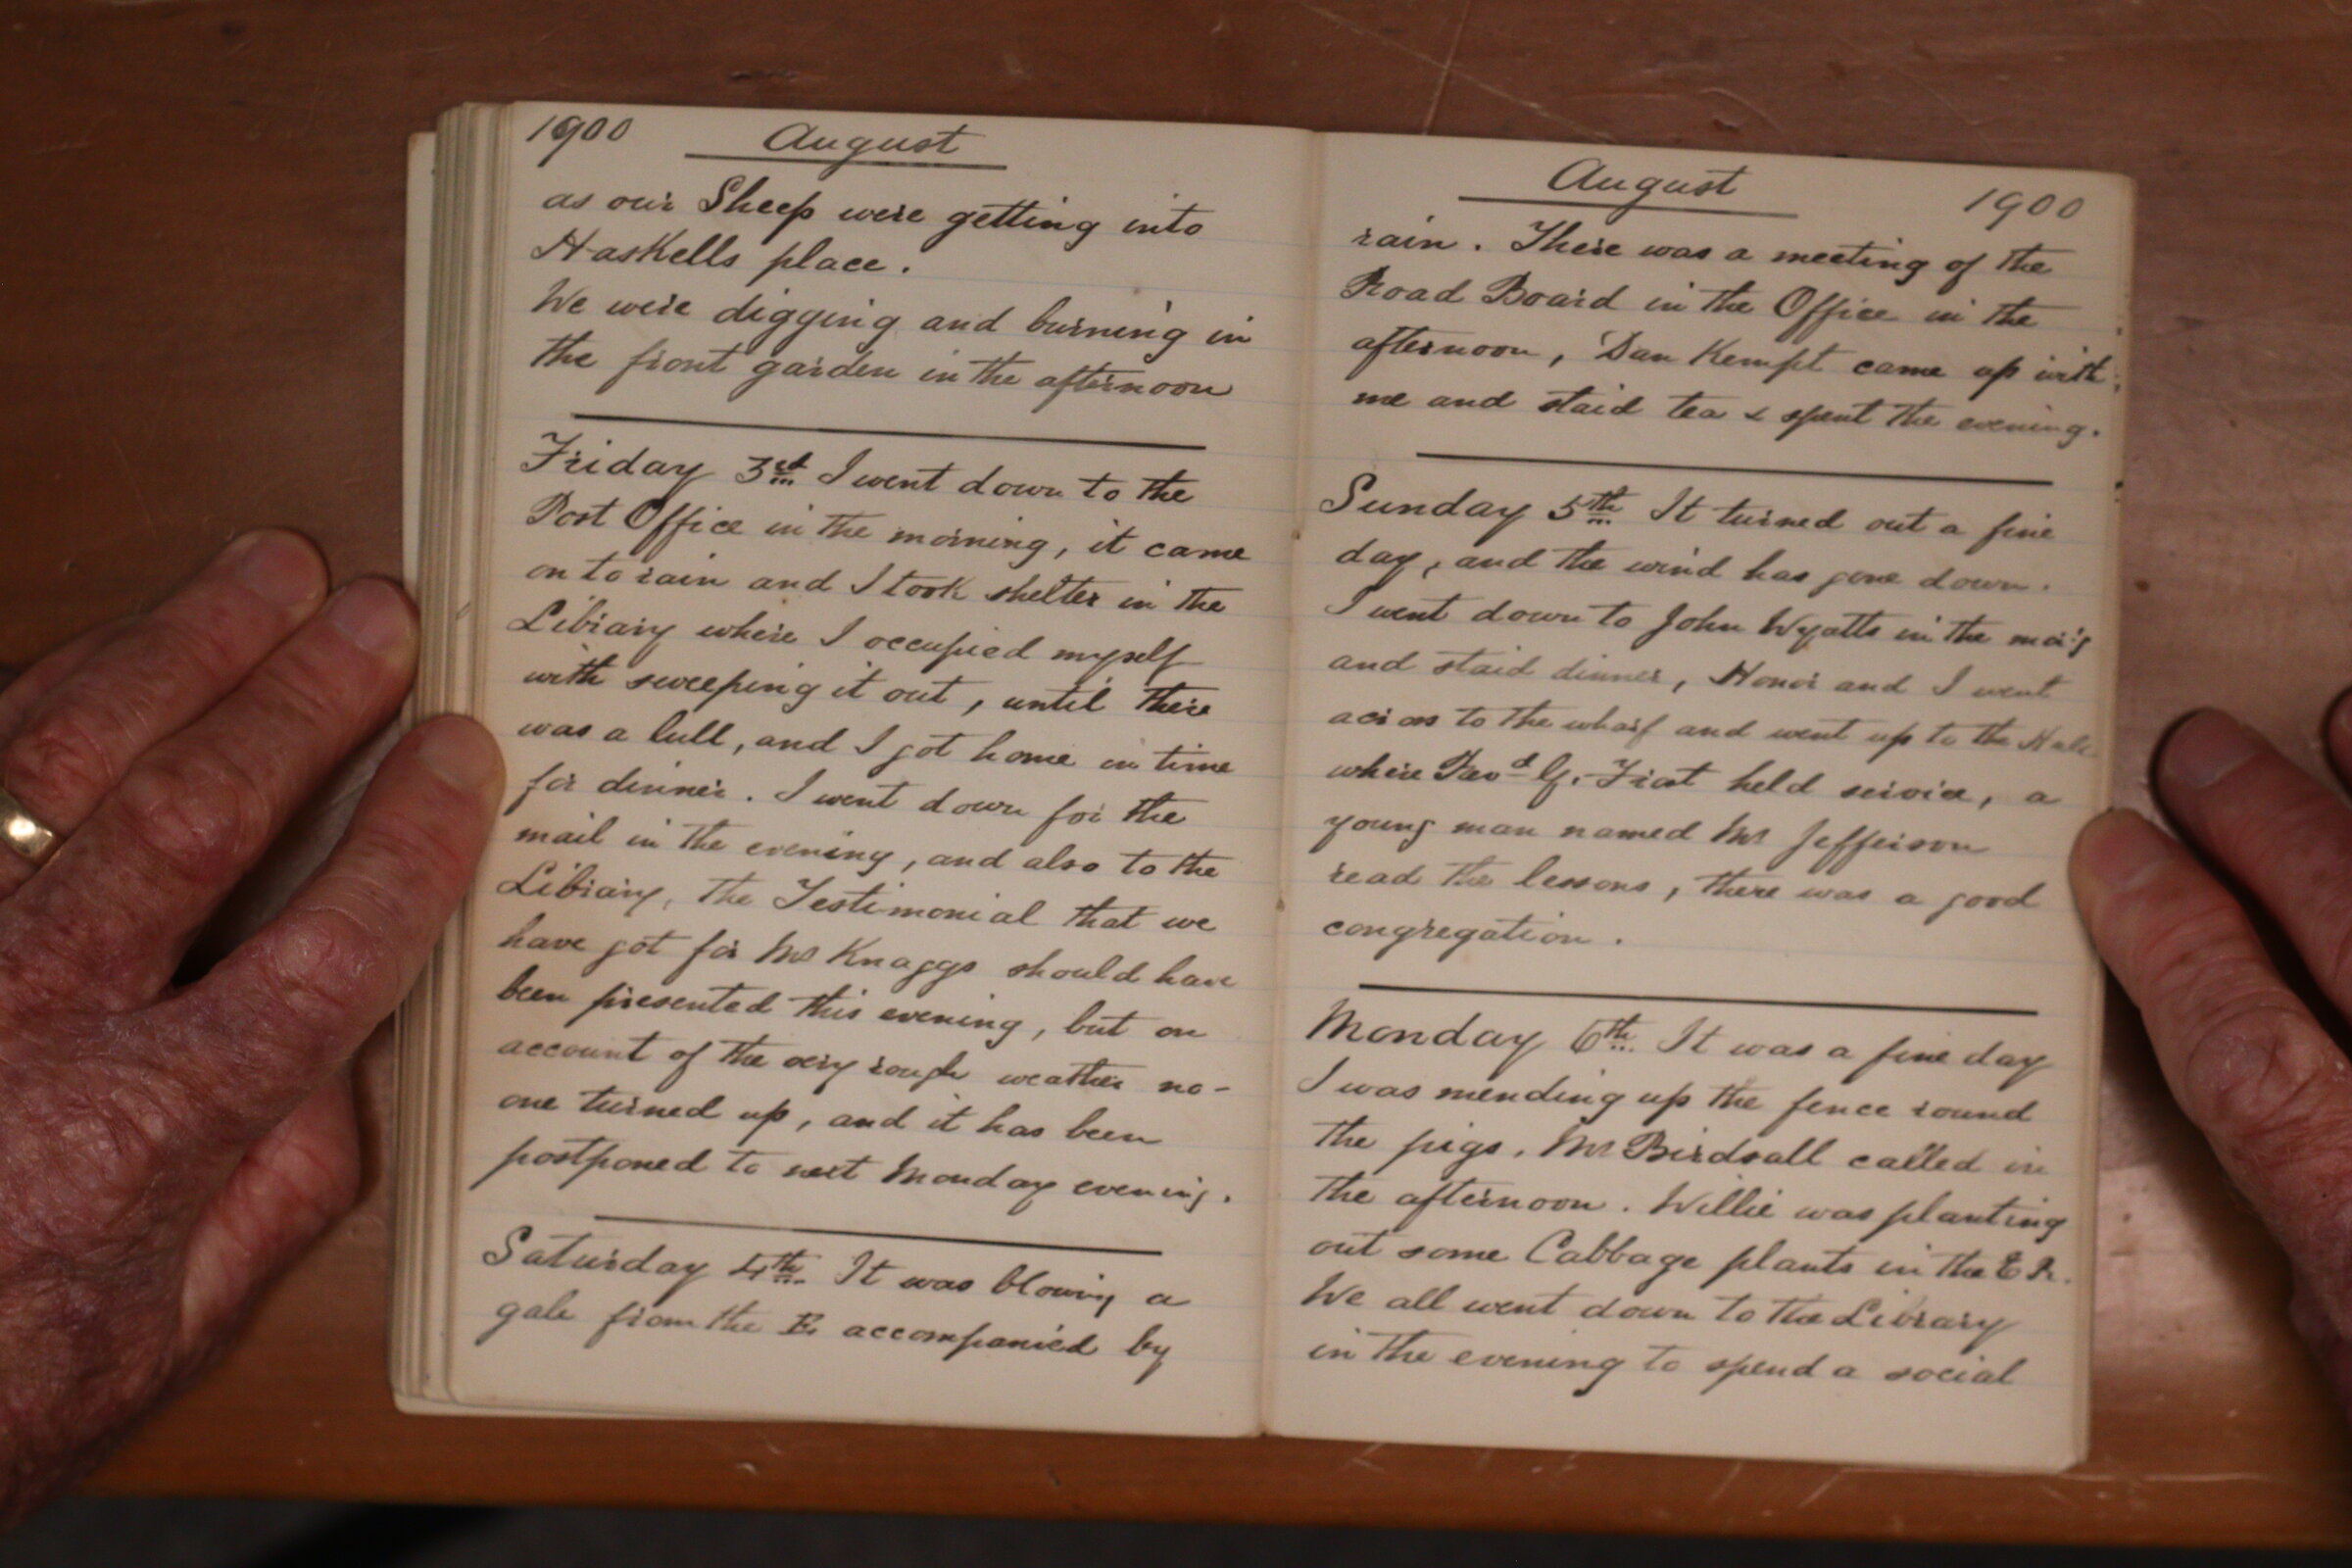 1900 August
as our Sheep were getting into
Haskells place.
We were digging and burning in
the front garden in the afternoon
Friday 3rd I went down to the
Post Office in the morning, it came
on to rain and I took shelter in the
Library where I occupied myself
with sweeping it out, until there
was a lull, and I got home in time
for dinner. I went down for the
mail in the evening, and also to the
Library, the Testimonial that we
have got for Mr Knaggs should have
been presented this evening, but on
account of the very rough weather no-
one turned up, and it has been
postponed to next Monday evening.
Saturday 4th It was blowing a
gale from the E. accompanied by
August 1900
rain. There was a meeting of the
Road Board in the Office in the
afternoon, Dan Kempt came up with
me and staid tea & spent the evening.
Sunday 5th It turned out a fine
day, and the wind has gone down.
I went down to John Wyatts in the mor'g
and staid dinner, Honor and I went
across to the wharf and went up to the Hall
where Revd G. Frost held service, a
young man named Mr Jefferson
read the lessons, there was a good
congregation.
Monday 6th It was a fine day
I was mending up the fence round
the pigs. Mr Birdsall called in
the afternoon. Willie was planting
out some Cabbage plants in the
We all went down to the Library
in the evening to spend a social